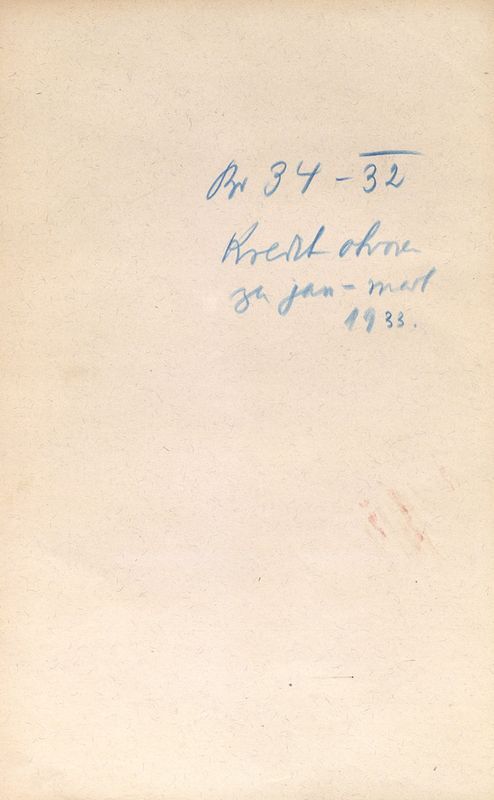 Br 34-32
Kredit otvoren
za jan-mart
1933.